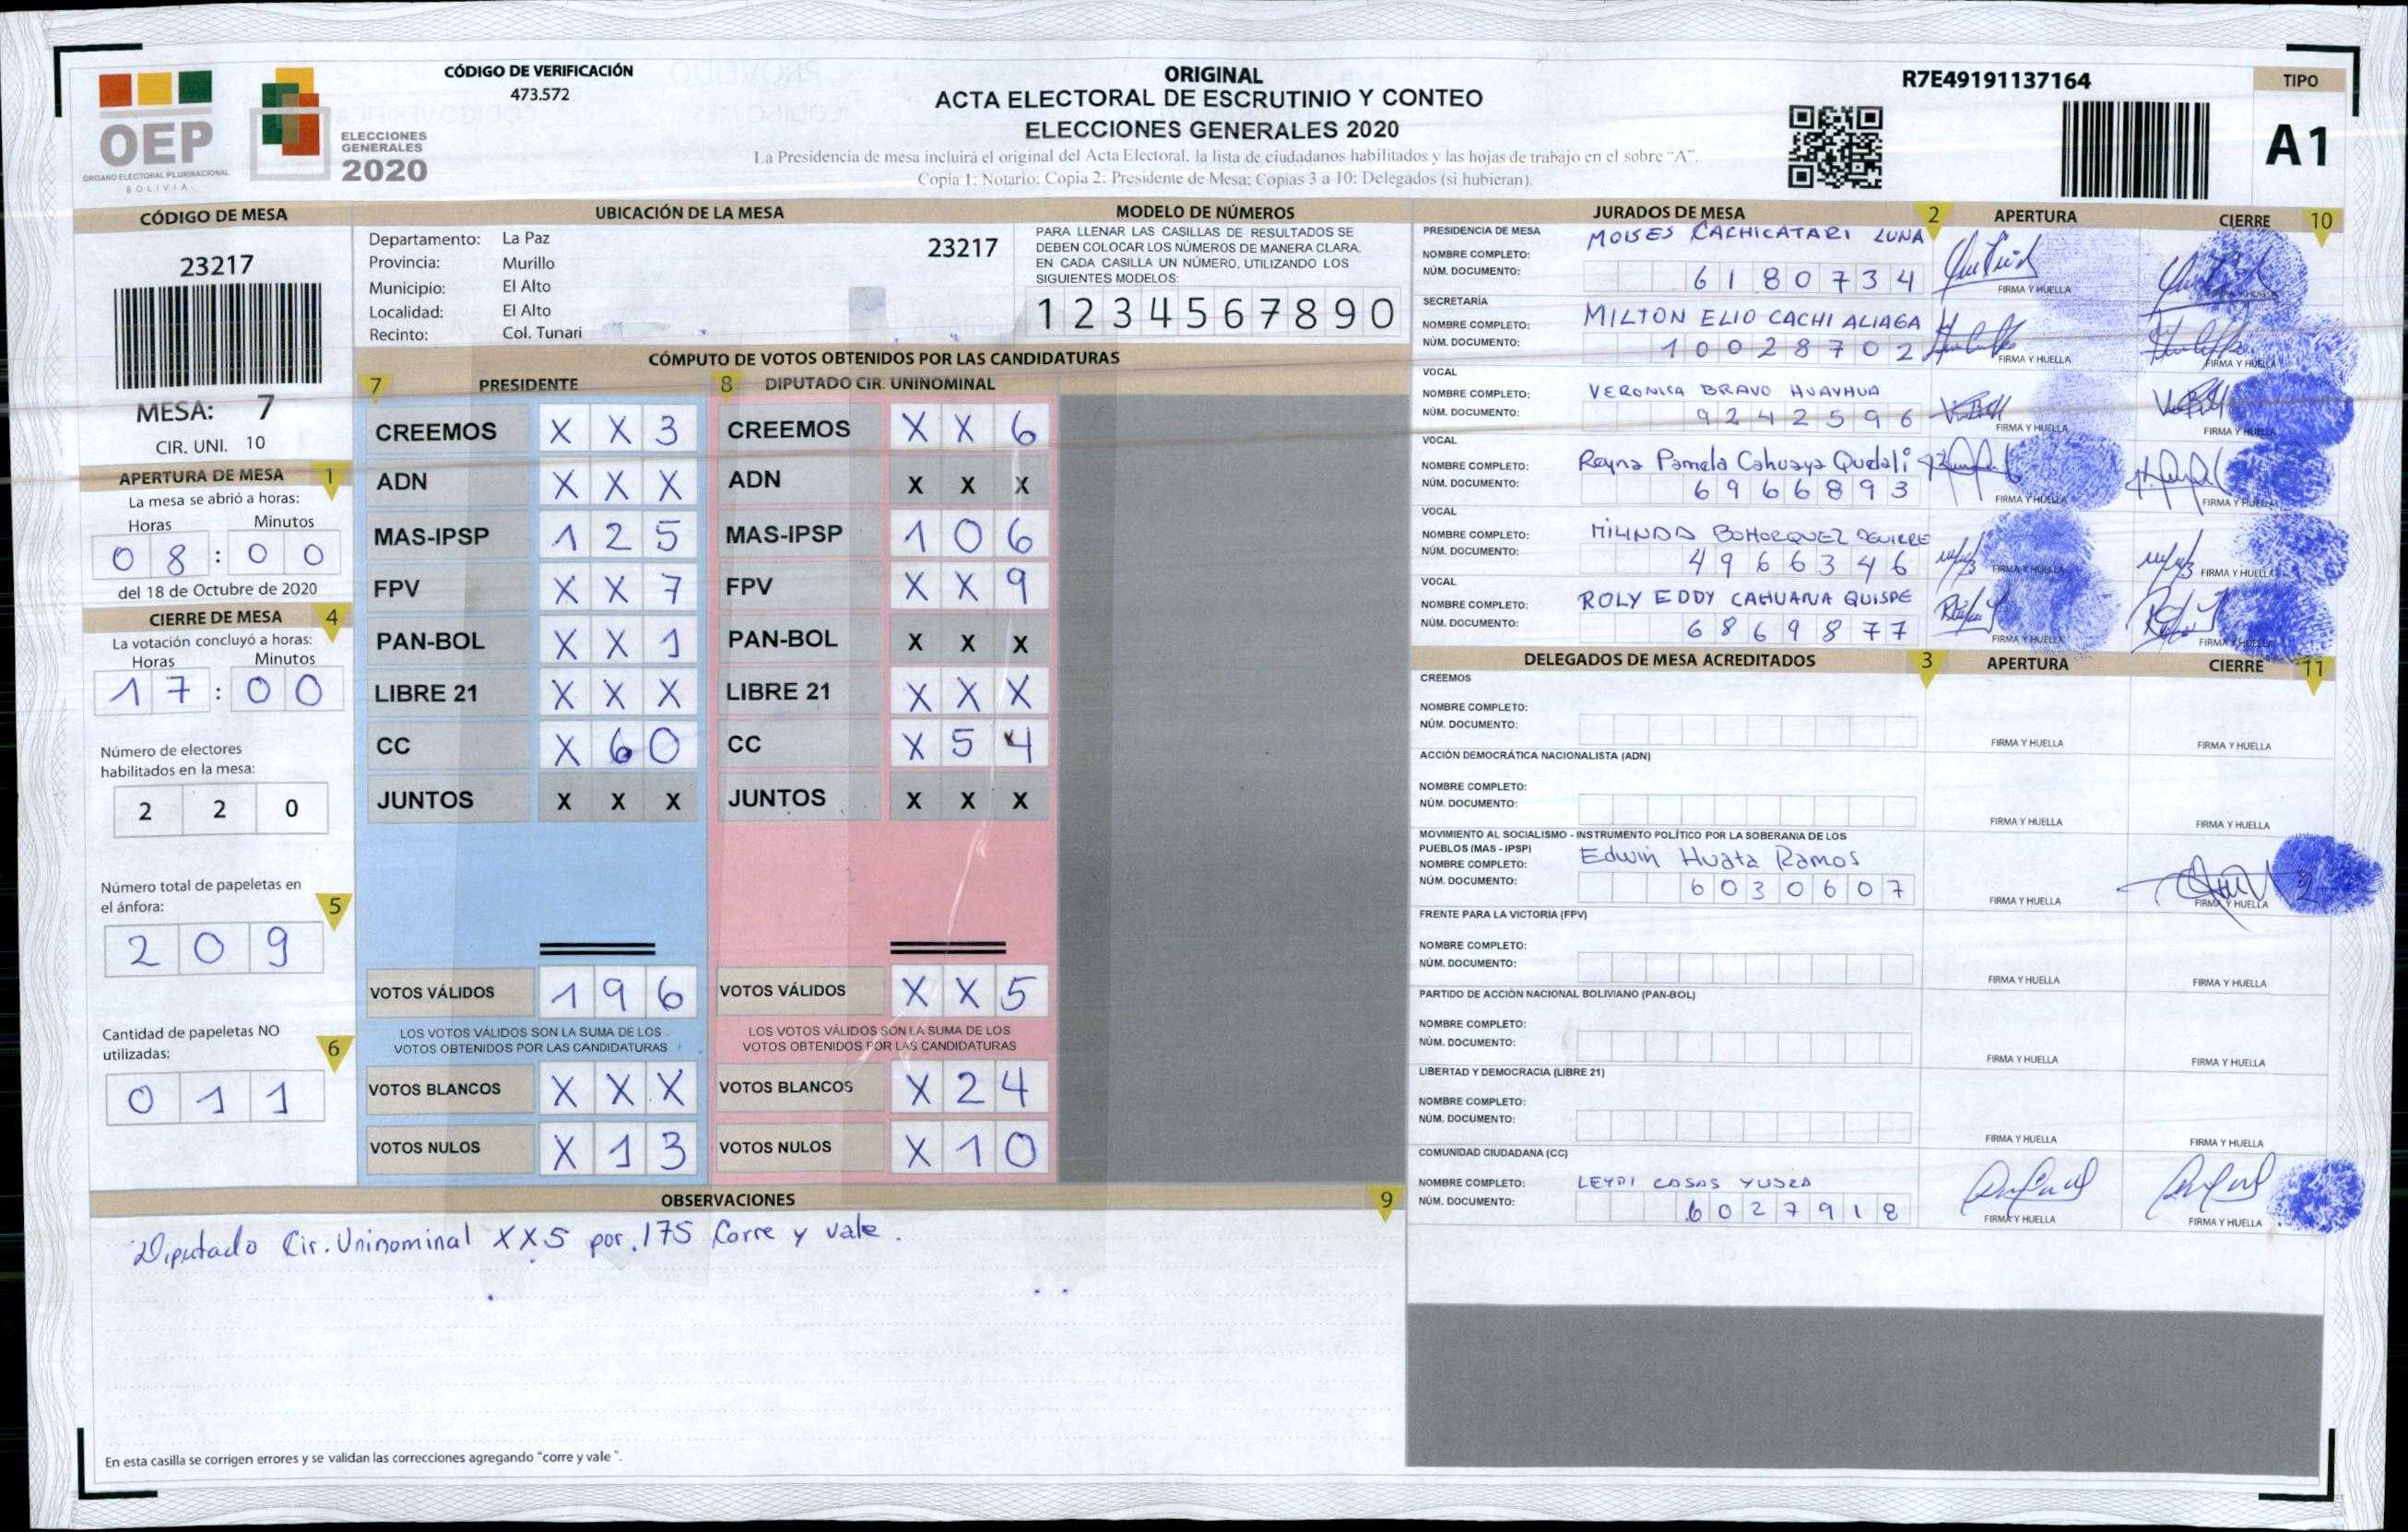 CÓDIGO DE VERIFICACIÓN
473.572
OEP
ÓRGANO ELECTORAL PLURINACIONAL
BOLIVIA
ELECCIONES
GENERALES
2020
ORIGINAL
ACTA ELECTORAL DE ESCRUTINIO Y CONTEO
ELECCIONES GENERALES 2020
La Presidencia de mesa incluirá el original del Acta Electoral, la lista de ciudadanos habilitados y las hojas de trabajo en el sobre "A".
Copia 1: Notario; Copia 2: Presidente de Mesa; Copias 3 a 10: Delegados (si hubieran).
R7E49191137164
TIPO
A1
CÓDIGO DE MESA
23217
MESA: 7
CIR. UNI. 10
APERTURA DE MESA 1
La mesa se abrió a horas:
Horas Minutos
08 : 00
del 18 de Octubre de 2020
CIERRE DE MESA 4
La votación concluyó a horas:
Horas Minutos
17 : 00
Número de electores
habilitados en la mesa:
2 2 0
Número total de papeletas en
el ánfora: 5
2 0 9
Cantidad de papeletas NO
utilizadas: 6
0 1 1
UBICACIÓN DE LA MESA
Departamento: La Paz
Provincia: Murillo
Municipio: El Alto
Localidad: El Alto
Recinto: Col. Tunari
23217
MODELO DE NÚMEROS
PARA LLENAR LAS CASILLAS DE RESULTADOS SE
DEBEN COLOCAR LOS NÚMEROS DE MANERA CLARA.
EN CADA CASILLA UN NÚMERO, UTILIZANDO LOS
SIGUIENTES MODELOS:
1 2 3 4 5 6 7 8 9 0
CÓMPUTO DE VOTOS OBTENIDOS POR LAS CANDIDATURAS
7 PRESIDENTE 8 DIPUTADO CIR. UNINOMINAL
CREEMOS X X 3 CREEMOS X X 6
ADN X X X ADN X X X
MAS-IPSP 1 2 5 MAS-IPSP 1 0 6
FPV X X 7 FPV X X 9
PAN-BOL X X 1 PAN-BOL X X X
LIBRE 21 X X X LIBRE 21 X X X
CC X 6 0 CC X 5 4
JUNTOS X X X JUNTOS X X X
VOTOS VÁLIDOS 1 9 6 VOTOS VÁLIDOS X X 5
LOS VOTOS VÁLIDOS SON LA SUMA DE LOS LOS VOTOS VÁLIDOS SON LA SUMA DE LOS
VOTOS OBTENIDOS POR LAS CANDIDATURAS VOTOS OBTENIDOS POR LAS CANDIDATURAS
VOTOS BLANCOS X X X VOTOS BLANCOS X 2 4
VOTOS NULOS X 1 3 VOTOS NULOS X 1 0
OBSERVACIONES 9
Diputado Cir. Uninominal XX5 por. 175 Corre y vale.
En esta casilla se corrigen errores y se validan las correcciones agregando "corre y vale ".
JURADOS DE MESA 2 APERTURA CIERRE 10
PRESIDENCIA DE MESA
NOMBRE COMPLETO: MOISES CACHICATARI LUNA
NÚM. DOCUMENTO: 6180734
FIRMA Y HUELLA
SECRETARÍA
NOMBRE COMPLETO: MILTON ELIO CACHI ALIAGA
NÚM. DOCUMENTO: 10028702
FIRMA Y HUELLA FIRMA Y HUELLA
VOCAL
NOMBRE COMPLETO: VERONICA BRAVO HUAYHUA
NÚM. DOCUMENTO: 9242596
FIRMA Y HUELLA FIRMA Y HUELLA
VOCAL
NOMBRE COMPLETO: Reyna Pamela Cahuaya Qudali
NÚM. DOCUMENTO: 6966893
FIRMA Y HUELLA FIRMA Y HUELLA
VOCAL
NOMBRE COMPLETO: MILINDA BOHORQUEZ AGUIRRE
NÚM. DOCUMENTO: 4966346
FIRMA Y HUELLA FIRMA Y HUELLA
VOCAL
NOMBRE COMPLETO: ROLY EDDY CAHUANA QUISPE
NÚM. DOCUMENTO: 6869877
FIRMA Y HUELLA FIRMA Y HUELLA
DELEGADOS DE MESA ACREDITADOS 3 APERTURA CIERRE 11
CREEMOS
NOMBRE COMPLETO:
NÚM. DOCUMENTO:
FIRMA Y HUELLA FIRMA Y HUELLA
ACCIÓN DEMOCRÁTICA NACIONALISTA (ADN)
NOMBRE COMPLETO:
NÚM. DOCUMENTO:
FIRMA Y HUELLA FIRMA Y HUELLA
MOVIMIENTO AL SOCIALISMO - INSTRUMENTO POLÍTICO POR LA SOBERANIA DE LOS
PUEBLOS (MAS - IPSP)
NOMBRE COMPLETO: Edwin Huata Ramos
NÚM. DOCUMENTO: 6030607
FIRMA Y HUELLA FIRMA Y HUELLA
FRENTE PARA LA VICTORIA (FPV)
NOMBRE COMPLETO:
NÚM. DOCUMENTO:
FIRMA Y HUELLA FIRMA Y HUELLA
PARTIDO DE ACCIÓN NACIONAL BOLIVIANO (PAN-BOL)
NOMBRE COMPLETO:
NÚM. DOCUMENTO:
FIRMA Y HUELLA FIRMA Y HUELLA
LIBERTAD Y DEMOCRACIA (LIBRE 21)
NOMBRE COMPLETO:
NÚM. DOCUMENTO:
FIRMA Y HUELLA FIRMA Y HUELLA
COMUNIDAD CIUDADANA (CC)
NOMBRE COMPLETO: LEYDI CASAS
NÚM. DOCUMENTO: 6027918
FIRMA Y HUELLA FIRMA Y HUELLA